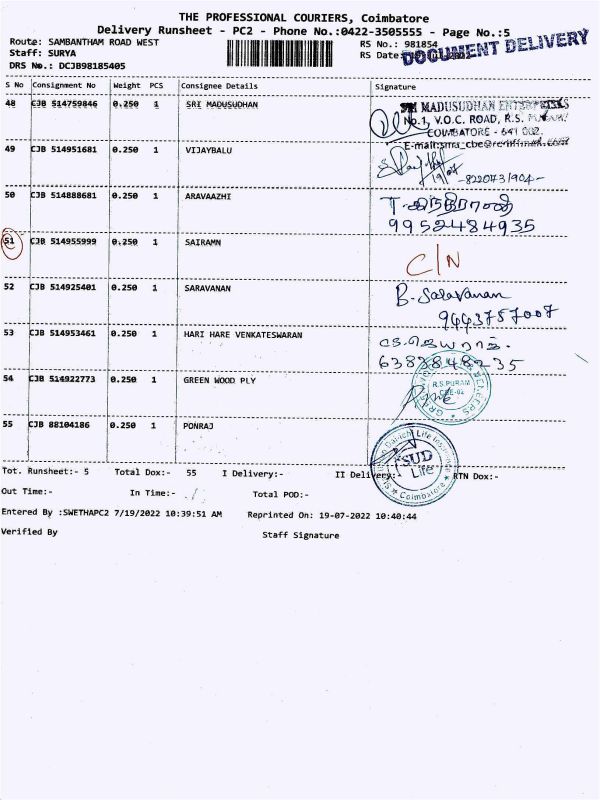 THE PROFESSIONAL COURIERS, Coimbatore
Delivery Runsheet - PC2 - Phone No.:0422-3505555 - Page No.:5
Route: SAMBANTHAM ROAD WEST
RS No.: 981854
Staff: SURYA
RS Date:
DOCUMENT DELIVERY
DRS No.: DCJB98185405
S No Consignment No Weight PCS Consignee Details Signature
48 CJB 514759846 0.250 1 SRI MADUSUDHAN
SRI MADUSUDHAN ENTERPRISES
No.1, V.O.C. ROAD, R.S. PURAM
COIMBATORE - 641 002.
49 CJB 514951681 0.250 1 VIJAYBALU
19/07 -8220731904-
50 CJB 514888681 0.250 1 ARAVAAZHI
9952484935
51 CJB 514955999 0.250 1 SAIRAMN
C/N
52 CJB 514925401 0.250 1 SARAVANAN
B. Saravanan
9443757007
53 CJB 514953461 0.250 1 HARI HARE VENKATESWARAN
54 CJB 514922773 0.250 1 GREEN WOOD PLY
R.S.PURAM
CBE-02
55 CJB 88104186 0.250 1 PONRAJ
SUD
Life
Coimbatore
Tot. Runsheet:- 5 Total Dox:- 55 I Delivery:- II Delivery:- RTN Dox:-
Out Time:- In Time:- Total POD:-
Entered By :SWETHAPC2 7/19/2022 10:39:51 AM Reprinted On: 19-07-2022 10:40:44
Verified By Staff Signature